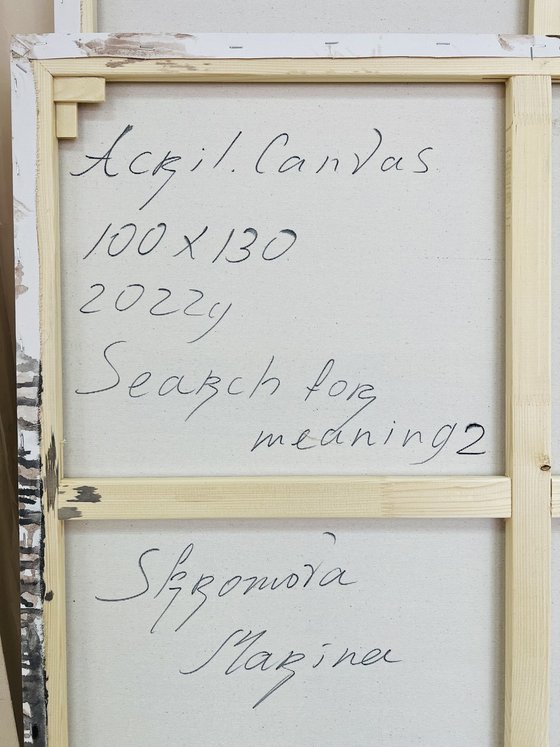 Acril. Canvas
100 x 130
2022y
Search for
meaning 2
Skromova
Marina